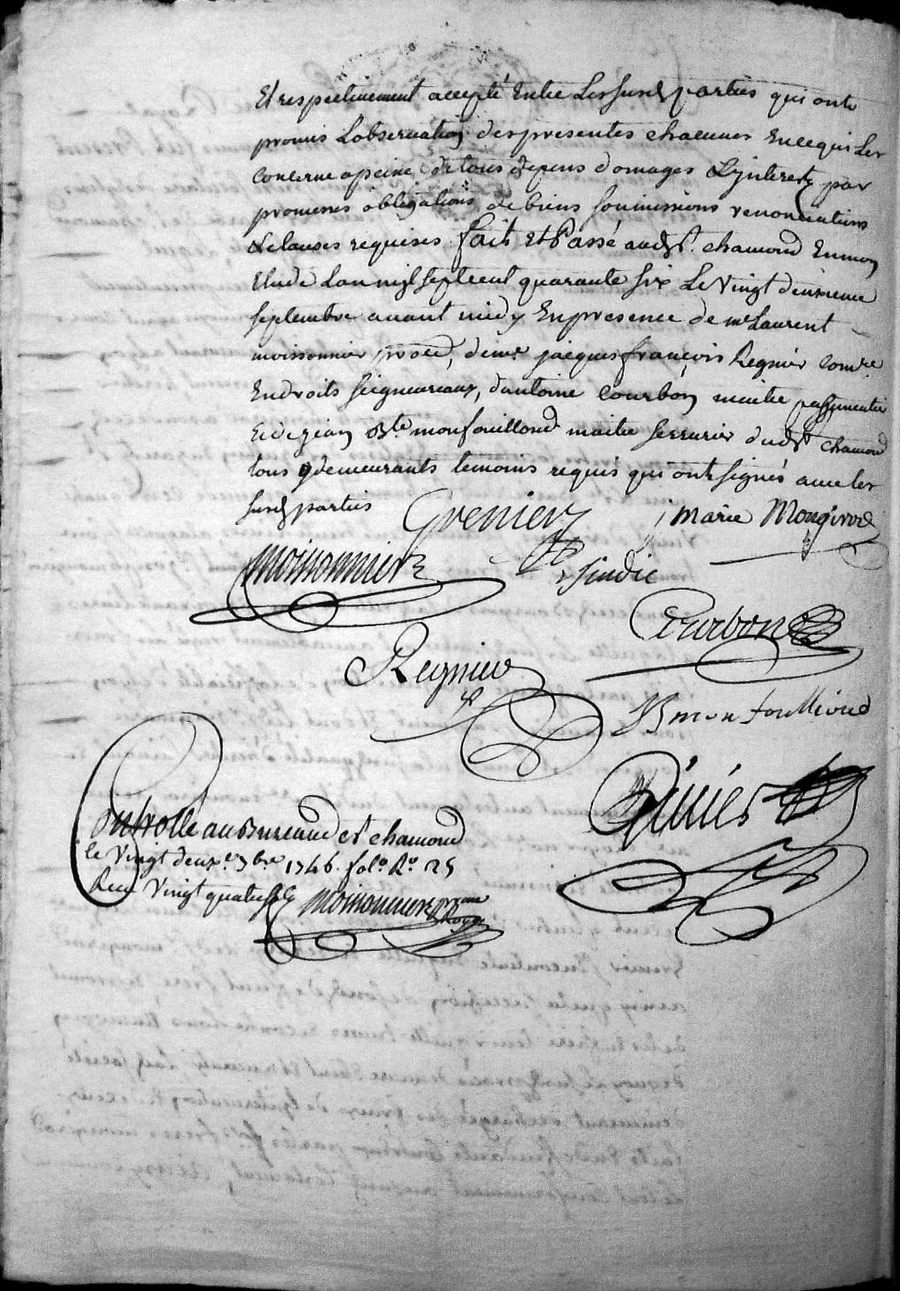 Et respectivement accepté Entre Les susd parties qui ont
promis Lobservation des presentes chacunes En ce qui Les
concerne a peine de tous depens domages & jnterets par
promesses obligations de biens soumissions renonciations
& clauses requises fait Et Passé aud St. chamond En mon
Etude Lan mil sept cent quarante six Le vingt deuxieme
septembre avant midy En presence de me Laurent
moissonnier proc, de me jacques françois Regnier com re
En droits seigneureaux, dantoine Courbon maitre passementier
Et de jean Bte monfouilloud maitre serrurier dud St chamond
tous y demeurants temoins requis qui ont signés avec les
susd parties
Grenier
Sindic
j marie Mongirod
Moissonnier
Courbon
Regnier
JB montoullioud
Controllé au Bureau de st chamond
le Vingt deuxe 7bre 1746. fol.o R.o 25
Reçu Vingt quatre sols
Moissonnier